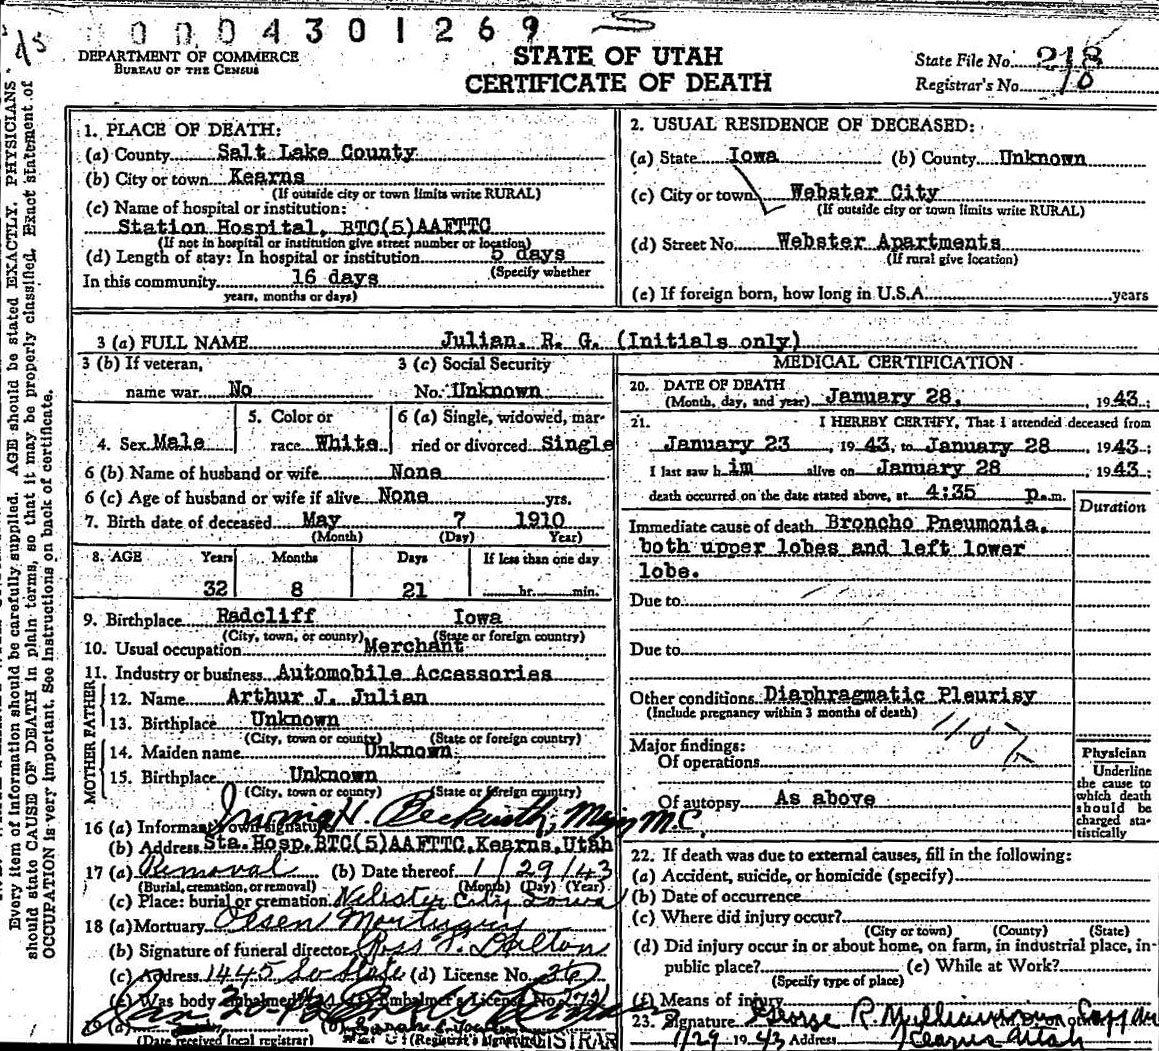 0004301269
DEPARTMENT OF COMMERCE
BUREAU OF THE CENSUS
STATE OF UTAH
CERTIFICATE OF DEATH
State File No. 218
Registrar's No. 10
Every item of information should be carefully supplied. AGE should be stated EXACTLY. PHYSICIANS
should state CAUSE OF DEATH in plain terms, so that it may be properly classified. Exact statement of
OCCUPATION is very important. See instructions on back of certificate.
1. PLACE OF DEATH:
(a) County Salt Lake County
(b) City or town Kearns
(If outside city or town limits write RURAL)
(c) Name of hospital or institution:
Station Hospital, BTC(5)AAFTTC
(If not in hospital or institution give street number or location)
(d) Length of stay: In hospital or institution 5 days
(Specify whether
In this community 16 days
years, months or days)
2. USUAL RESIDENCE OF DECEASED:
(a) State Iowa (b) County Unknown
(c) City or town Webster City
(If outside city or town limits write RURAL)
(d) Street No. Webster Apartments
(If rural give location)
(e) If foreign born, how long in U.S.A. years
3 (a) FULL NAME Julian, R. G. (Initials only)
3 (b) If veteran, 3 (c) Social Security
name war No No. Unknown
4. Sex Male 5. Color or race White 6 (a) Single, widowed, married or divorced Single
6 (b) Name of husband or wife None
6 (c) Age of husband or wife if alive None yrs.
7. Birth date of deceased May 7 1910
(Month) (Day) Year)
8. AGE Years Months Days If less than one day
32 8 21 hr. min.
9. Birthplace Radcliff Iowa
(City, town, or county) (State or foreign country)
10. Usual occupation Merchant
11. Industry or business Automobile Accessories
FATHER
12. Name Arthur J. Julian
13. Birthplace Unknown
(City, town or county) (State or foreign country)
MOTHER
14. Maiden name Unknown
15. Birthplace Unknown
(City, town or county) (State or foreign country)
16 (a) Informant's own signature Beckwith, Major M.C.
(b) Address Sta. Hosp. BTC(5)AAFTTC, Kearns, Utah
17 (a) Removal (b) Date thereof 1/29/43
(Burial, cremation, or removal) (Month) (Day) (Year)
(c) Place: burial or cremation Webster City Iowa
18 (a) Mortuary Olsen Mortuary
(b) Signature of funeral director Ross T. Dalton
(c) Address 1445 So State (d) License No. 36
(e) Was body embalmed Embalmer's License No.
(Date received local registrar) (Registrar's signature) REGISTRAR
MEDICAL CERTIFICATION
20. DATE OF DEATH
(Month, day, and year) January 28, 1943
21. I HEREBY CERTIFY, That I attended deceased from
January 23, 1943, to January 28, 1943;
I last saw him alive on January 28, 1943;
death occurred on the date stated above, at 4:35 p.m.
Duration
Immediate cause of death Broncho Pneumonia,
both upper lobes and left lower
lobe.
Due to
Due to
Other conditions Diaphragmatic Pleurisy
(Include pregnancy within 3 months of death)
Major findings:
Of operations
Of autopsy As above
Physician
Underline
the cause to
which death
should be
charged sta-
tistically
22. If death was due to external causes, fill in the following:
(a) Accident, suicide, or homicide (specify)
(b) Date of occurrence
(c) Where did injury occur?
(City or town) (County) (State)
(d) Did injury occur in or about home, on farm, in industrial place, in
public place? (e) While at Work?
(Specify type of place)
(f) Means of injury
23. Signature George R.
1/29 1943 Address Kearns Utah